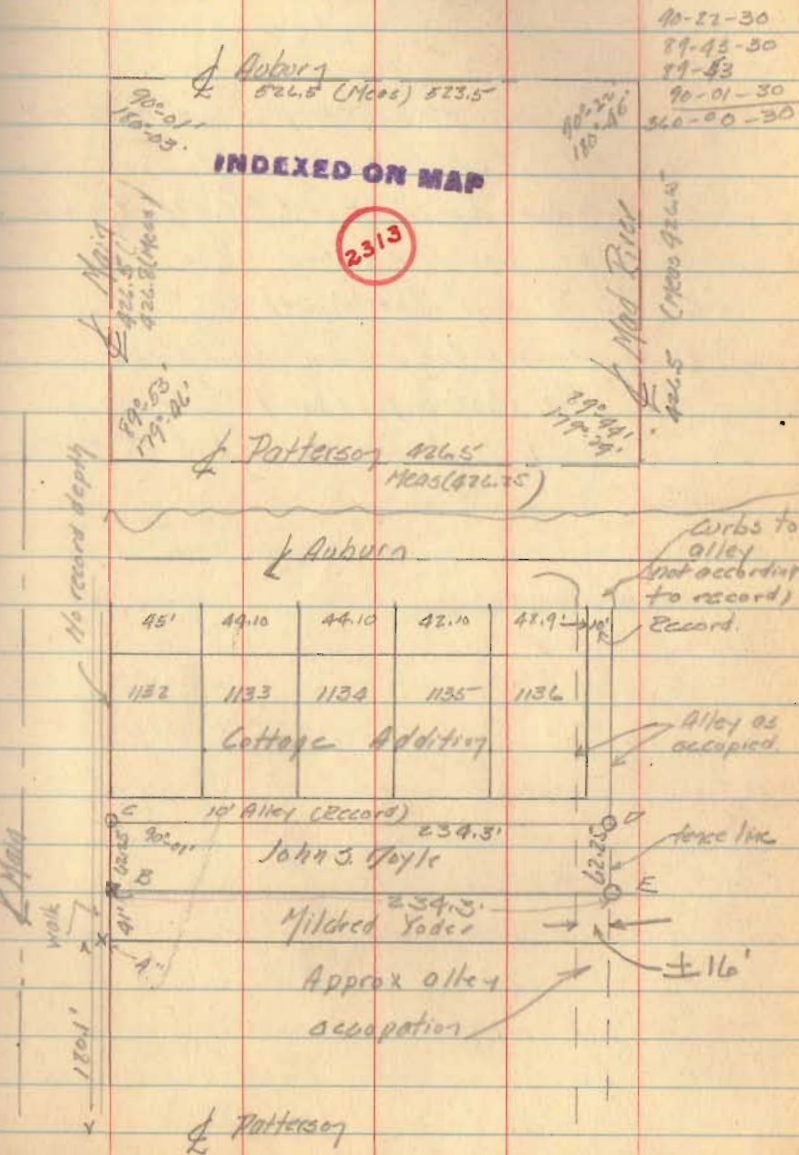 90-22-30
89-43-30
89-53
90-01-30
360-00-30
℄ Auburn
526.5 (Meas) 523.5
90°-01'
180°-03'
90°-22'
180°-46'
INDEXED ON MAP
2313
℄ Main
426.5'
426.8 (Meas)
℄ Mad River
426.5 (Meas 426.15)
89°-53'
179°-46'
89°-44'
179°-29'
℄ Patterson 426.5
Meas (426.25)
No record depth
℄ Auburn
Curbs to
alley
not according
to record)
Record.
45' 44.10 44.10 42.10 48.9' 10'
1132 1133 1134 1135 1136
Cottage Addition
Alley as
occupied.
C 10' Alley (Record) D
62.25' 90°-01' 234.3' 62.25'
John S. Doyle
fence line
B 234.3' E
℄ Main
walk
41' Mildred Yoder
X 4"
± 16'
Approx alley
occupation
180.1'
℄ Patterson